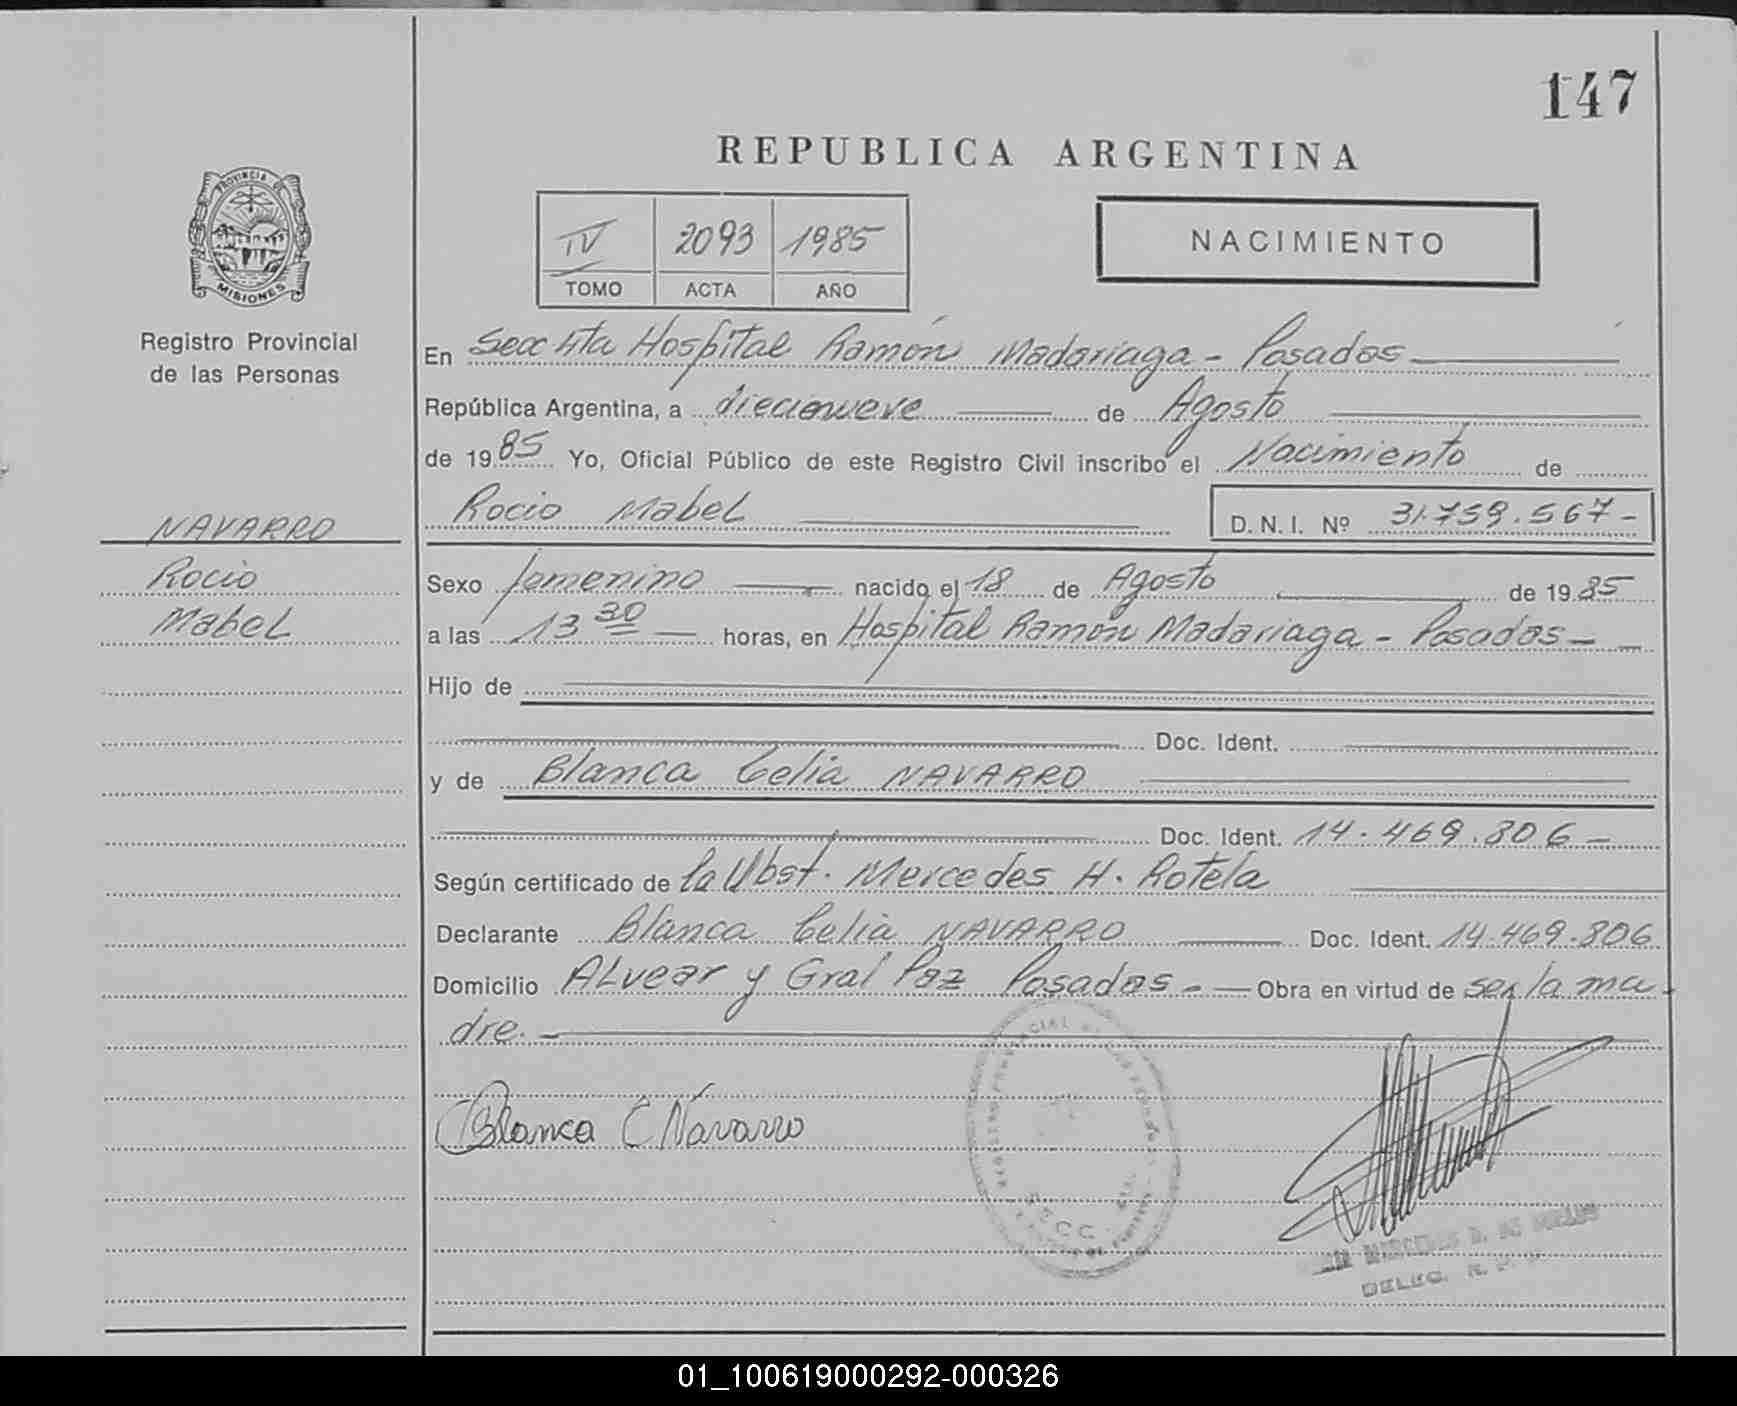 147
REPUBLICA ARGENTINA
PROVINCIA DE
MISIONES
Registro Provincial
de las Personas
IV 2093 1985
TOMO ACTA AÑO
NACIMIENTO
En Secc 4ta Hospital Ramón Madariaga - Posadas
República Argentina, a diecinueve de Agosto
de 1985 Yo, Oficial Público de este Registro Civil inscribo el Nacimiento de
Rocio Mabel D. N. I. Nº 31.759.567-
NAVARRO
Rocio
Mabel
Sexo femenino nacido el 18 de Agosto de 1985
a las 13 30 horas, en Hospital Ramón Madariaga - Posadas -
Hijo de
Doc. Ident.
y de Blanca Celia NAVARRO
Doc. Ident. 14.469.806 -
Según certificado de la Obst. Mercedes H. Rotela
Declarante Blanca Celia NAVARRO Doc. Ident. 14.469.806
Domicilio ALvear y Gral Paz Posadas - Obra en virtud de ser la ma-
dre.-
Blanca C Navarro
SECC.
DELEG.
01_100619000292-000326